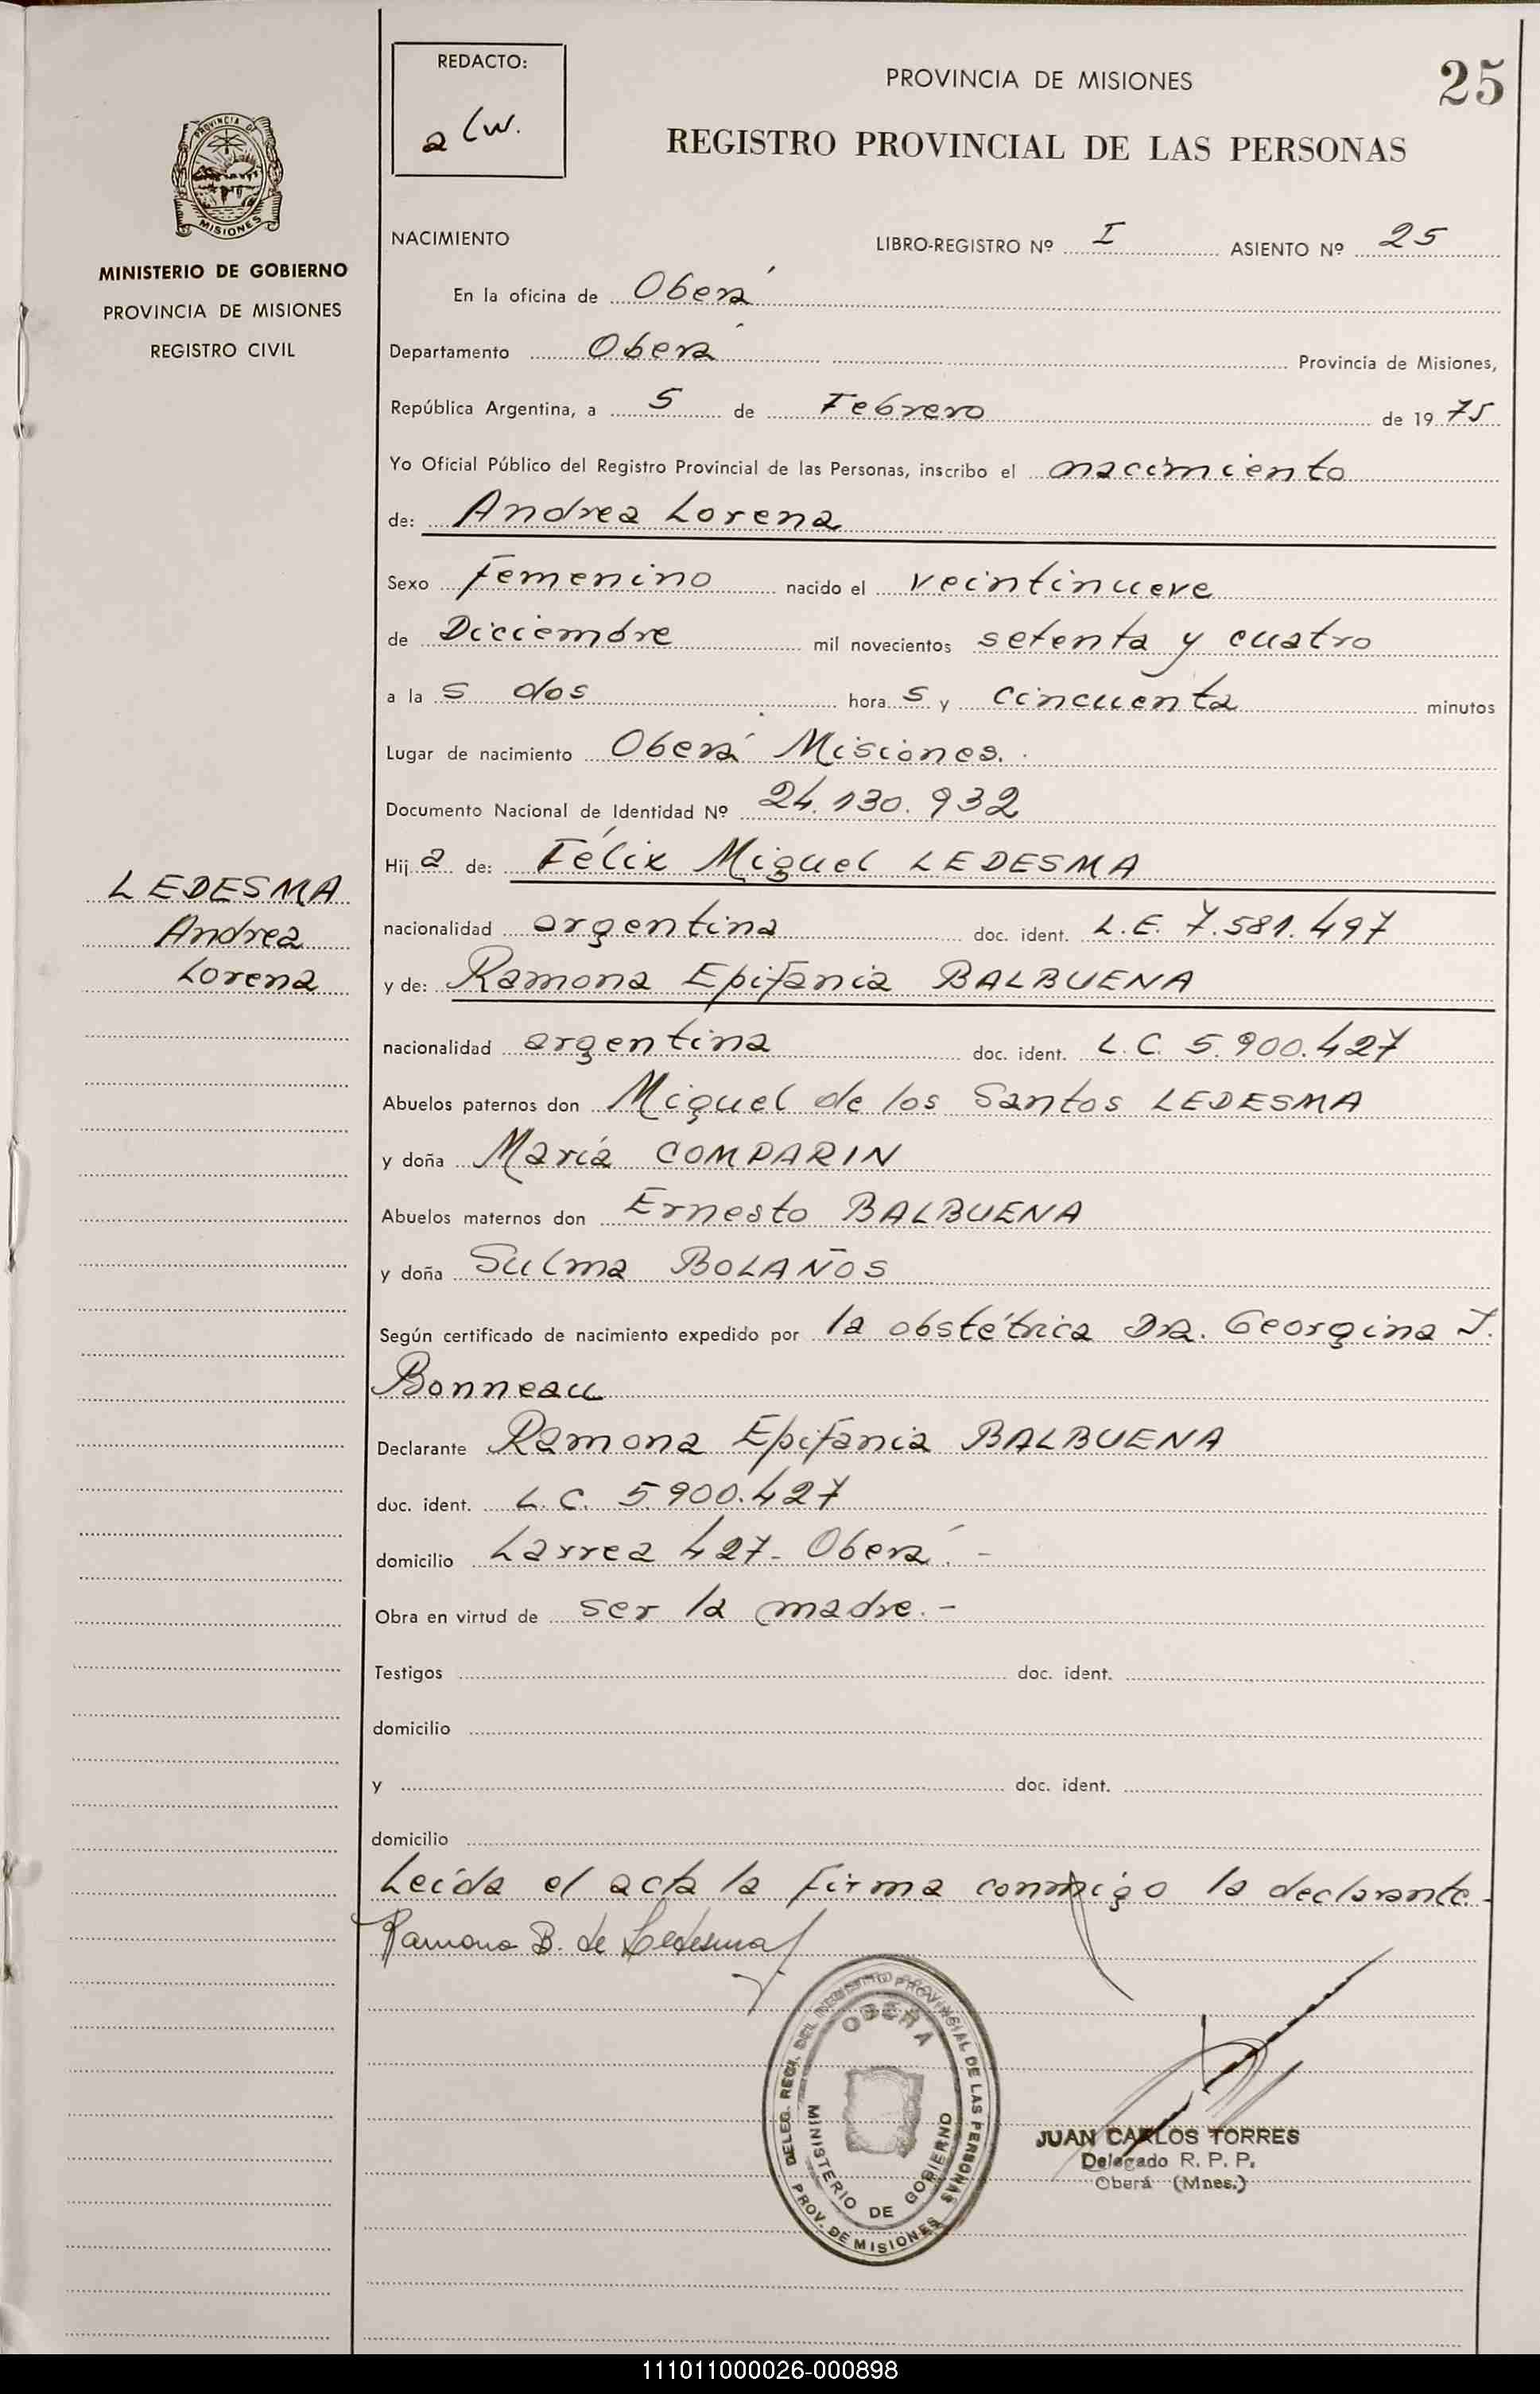 REDACTO:
a lw.
PROVINCIA DE MISIONES
25
REGISTRO PROVINCIAL DE LAS PERSONAS
PROVINCIA DE
MISIONES
MINISTERIO DE GOBIERNO
PROVINCIA DE MISIONES
REGISTRO CIVIL
NACIMIENTO LIBRO-REGISTRO Nº I ASIENTO Nº 25
En la oficina de Oberá
Departamento Oberá Provincia de Misiones,
República Argentina, a 5 de Febrero de 1975
Yo Oficial Público del Registro Provincial de las Personas, inscribo el nacimiento
de: Andrea Lorena
Sexo Femenino nacido el veintinueve
de Diciembre mil novecientos setenta y cuatro
a las dos horas y cincuenta minutos
Lugar de nacimiento Oberá Misiones.
Documento Nacional de Identidad Nº 24.130.932
Hija de: Félix Miguel LEDESMA
LEDESMA
Andrea
Lorena
nacionalidad argentina doc. ident. L.E. 7.581.497
y de: Ramona Epifania BALBUENA
nacionalidad argentina doc. ident. L.C. 5.900.427
Abuelos paternos don Miguel de los Santos LEDESMA
y doña María COMPARIN
Abuelos maternos don Ernesto BALBUENA
y doña Sulma BOLAÑOS
Según certificado de nacimiento expedido por la obstétrica Dra. Georgina J.
Bonneau
Declarante Ramona Epifania BALBUENA
doc. ident. L.C. 5.900.427
domicilio Larrea 427- Oberá.-
Obra en virtud de ser la madre.-
Testigos doc. ident.
domicilio
y doc. ident.
domicilio
Leída el acta la firma conmigo la declarante.-
Ramona B. de Ledesma
DELEG. REGI. DEL REGISTRO PROVINCIAL DE LAS PERSONAS
OBERA
MINISTERIO DE GOBIERNO
PROV. DE MISIONES
JUAN CARLOS TORRES
Delegado R. P. P.
Oberá (Mnes.)
111011000026-000898